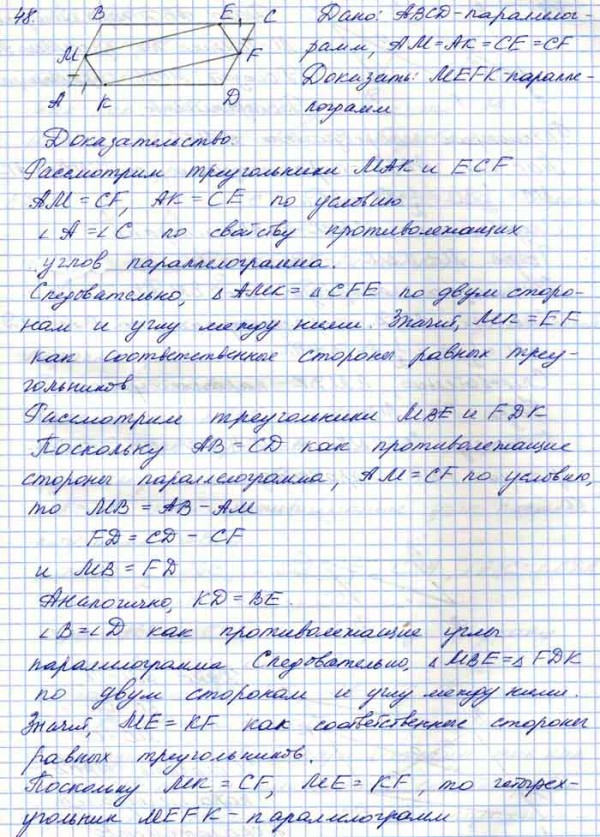 48.
B E C
M F
A K D
Дано: ABCD - параллелог-
рамм, AM = AK = CE = CF
Доказать: MEFK - паралле-
лограмм
Доказательство:
Рассмотрим треугольники MAK и ECF
AM = CF, AK = CE по условию
∠A = ∠C по свойству противолежащих
углов параллелограмма.
Следовательно, △AMK = △CFE по двум сторо-
нам и углу между ними. Значит, MK = EF
как соответственные стороны равных треу-
гольников
Рассмотрим треугольники MBE и FDK
Поскольку AB = CD как противолежащие
стороны параллелограмма, AM = CF по условию,
то MB = AB - AM
FD = CD - CF
и MB = FD
Аналогично, KD = BE.
∠B = ∠D как противолежащие углы
параллилограмма. Следовательно, △MBE = △FDK
по двум сторонам и углу между ними.
Значит, ME = KF как соответственные стороны
равных треугольников.
Поскольку MK = CF, ME = KF, то четырех-
угольник MEFK - параллилограмм